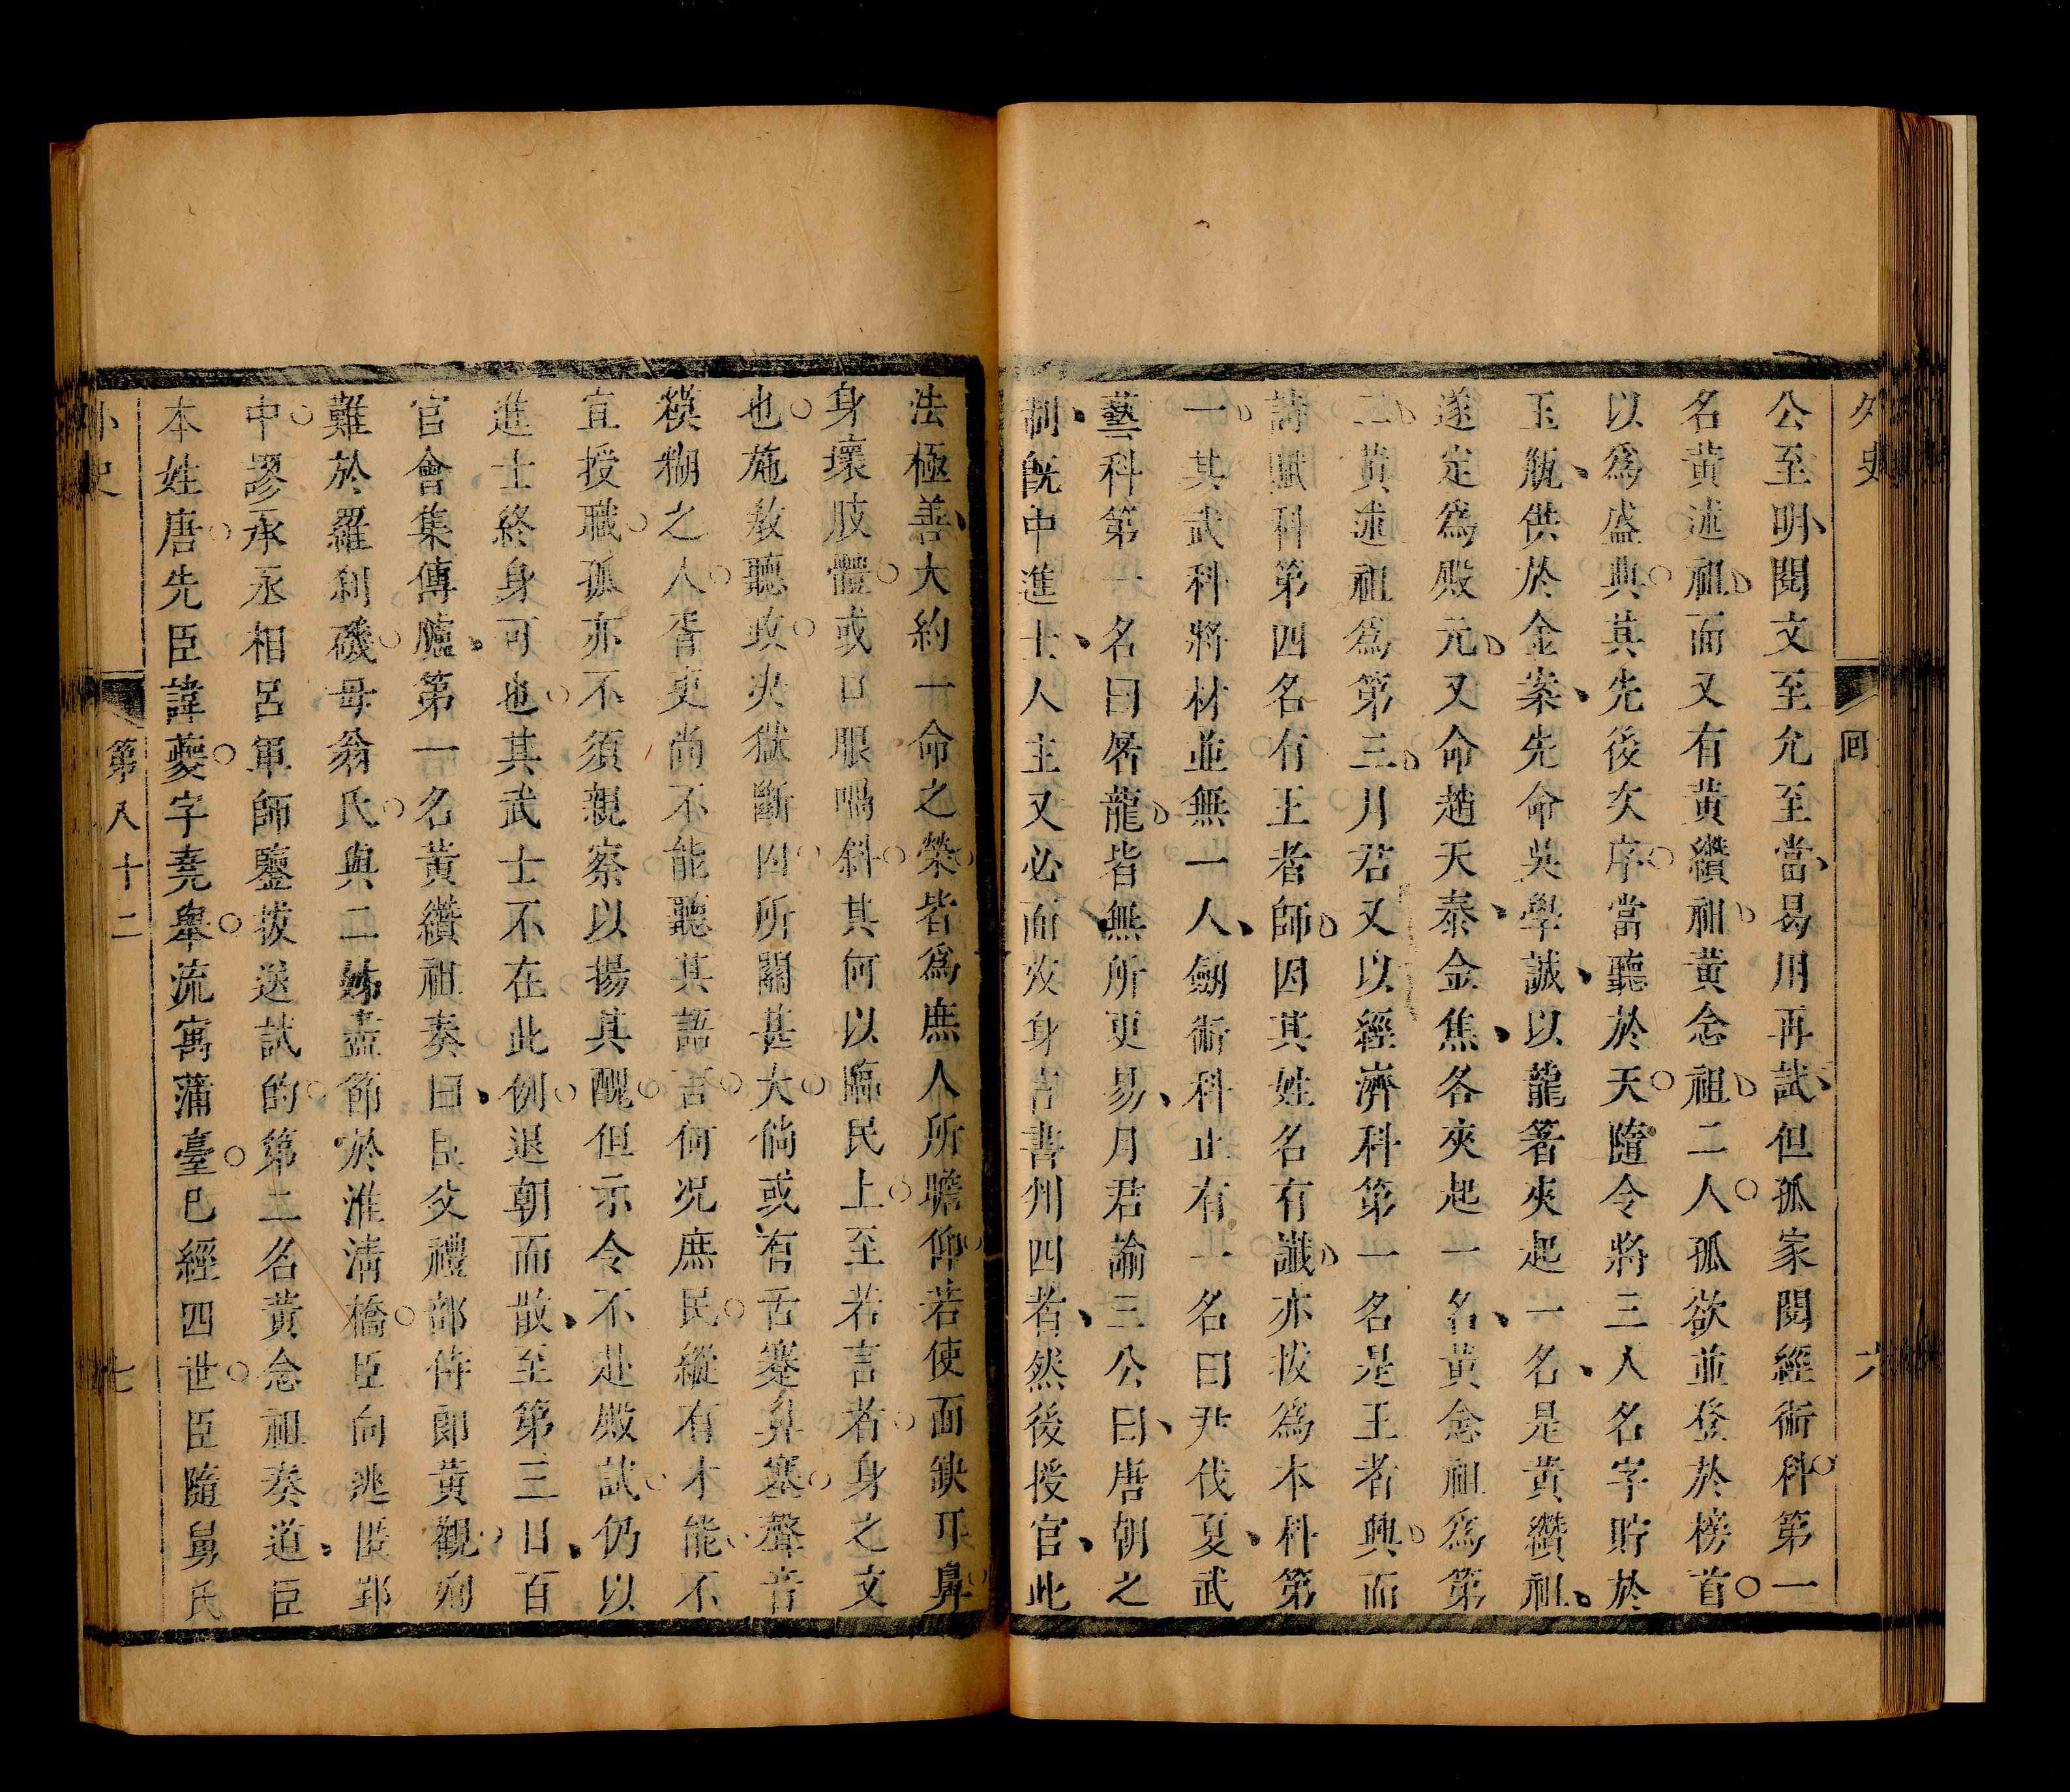 外史 回 八十二 六
公至明閱文至允至當曷用再試但孤家閱經術科第一
名黃述祖而又有黃纘祖黃念祖二人孤欲並登於榜首
以爲盛典其先後次序當聽於天隨令將三人名字貯於
玉瓶供於金案先命吳學誠以龍箸夾起一名是黃纘祖
遂定爲殿元又命趙天泰金焦各夾起一名黃念祖爲第
二黃述祖爲第三月君又以經濟科第一名是王者興而
詩賦科第四名有王者師因其姓名有讖亦拔爲本科第
一其武科將材並無一人劒術科止有一名曰尹伐夏武
藝科第一名曰畧龍皆無所更易月君諭三公曰唐朝之
制旣中進士人主又必面攷身言書州四者然後授官此
法極善大約一命之榮皆爲庶人所瞻仰若使面缺耳鼻
身壞肢體或口眼喎斜其何以臨民上至若言者身之文
也施敎聽政決獄斷囚所關甚大倘或有舌蹇鼻塞聲音
模糊之人胥吏尚不能聽其語言何况庶民縱有才能不
宜授職孤亦不須親察以揚其醜但示令不赴殿試仍以
進士終身可也其武士不在此例退朝而散至第三日百
官會集傳臚第一名黃纘祖奏曰臣父禮部侍郎黃觀殉
難於羅刹磯母翁氏與二姊盡節於淮清橋臣向逃匿郢
中謬承丞相呂軍師鑒拔送試的第二名黃念祖奏道臣
本姓唐先臣諱夔字堯舉流寓蒲臺已經四世臣隨舅氏
外史 第八十二 七